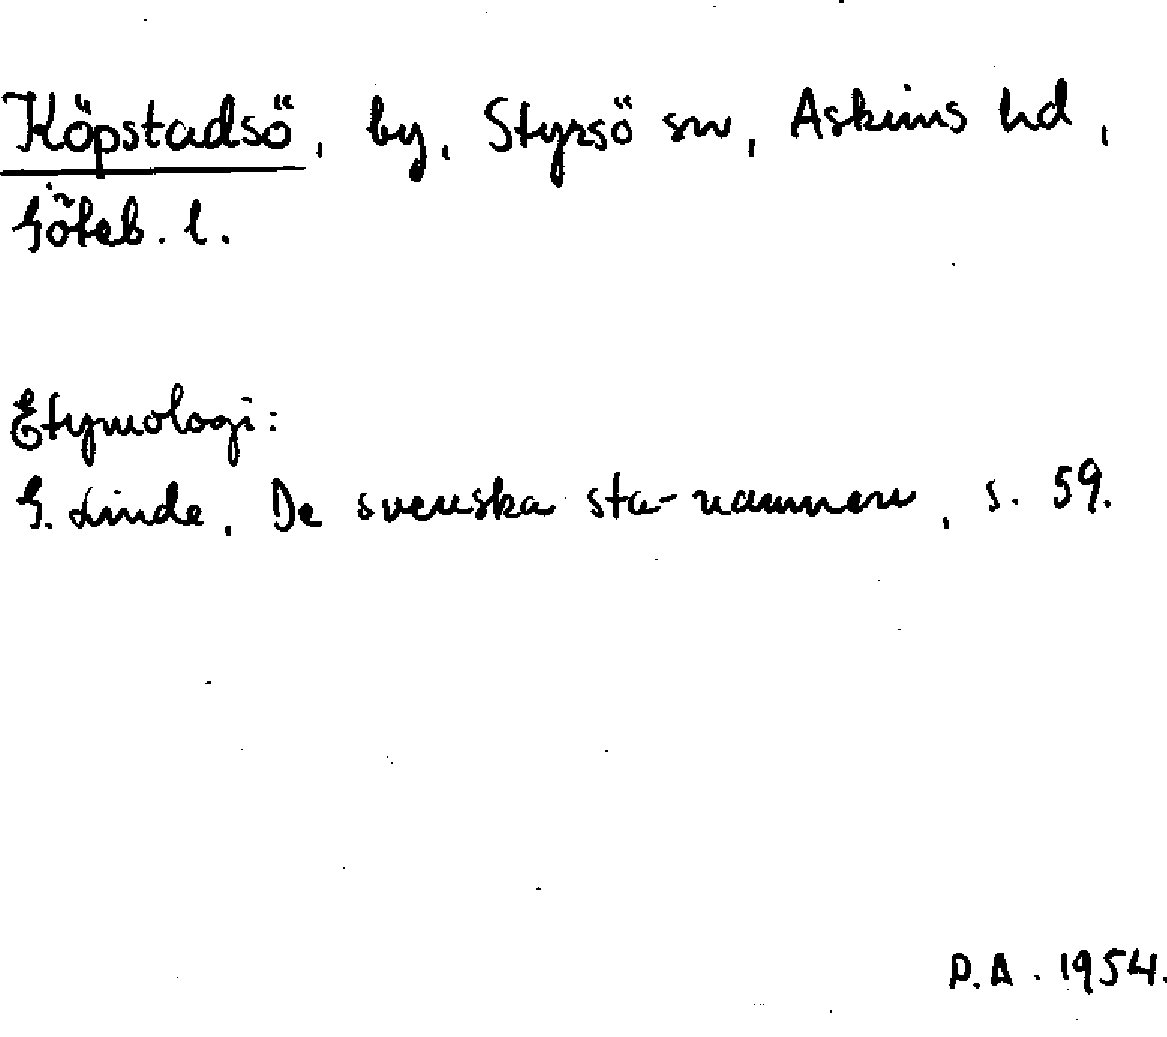 Köpstadsö, by, Styrsö sn, Askims hd,
Göteb. l.
Etymologi:
G. Linde, De svenska sta-namnen, s. 59.
P.A. 1954.